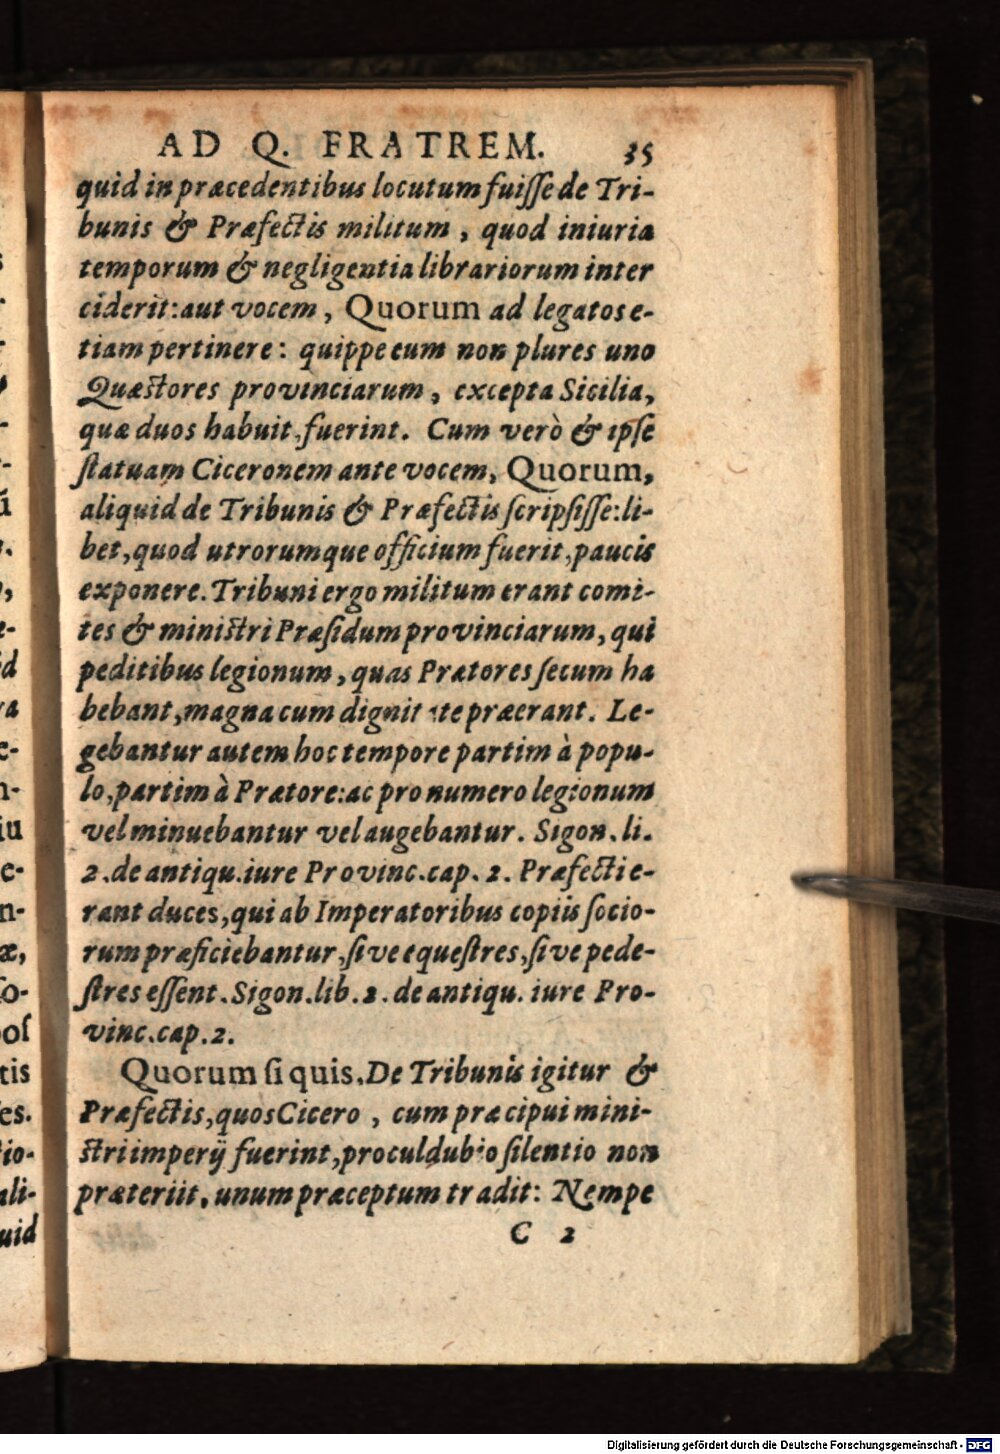 AD Q. FRATREM. 35
quid in præcedentibus locutum fuiſſe de Tri-
bunis & Præfectis militum , quod iniuria
temporum & negligentia librariorum inter
ciderit: aut vocem , Quorum ad legatos e-
tiam pertinere : quippe eum non plures uno
Quæstores provinciarum , excepta Sicilia,
quæ duos habuit, fuerint. Cum verò & ipſe
ſtatuam Ciceronem ante vocem, Quorum,
aliquid de Tribunis & Præfectis ſcripſiſſe: li-
bet, quod utrorumque officium fuerit, paucis
exponere. Tribuni ergo militum erant comi-
tes & miniſtri Præſidum provinciarum, qui
peditibus legionum, quas Prætores ſecum ha
bebant, magna cum dignitate præerant. Le-
gebantur autem hoc tempore partim à popu-
lo, partim à Prætore: ac pro numero legionum
vel minuebantur vel augebantur. Sigon. li.
2. de antiqu. iure Provinc. cap. 2. Præfecti e-
rant duces, qui ab Imperatoribus copiis ſocio-
rum præficiebantur, ſive equeſtres, ſive pede-
ſtres eſſent. Sigon. lib. 2. de antiqu. iure Pro-
vinc. cap. 2.
Quorum ſi quis. De Tribunis igitur &
Præfectis, quos Cicero , cum præcipui mini-
ſtri imperij fuerint, proculdubio ſilentio non
præteriit, unum præceptum tradit: Nempe
C 2
Digitalisierung gefördert durch die Deutsche Forschungsgemeinschaft - DFG